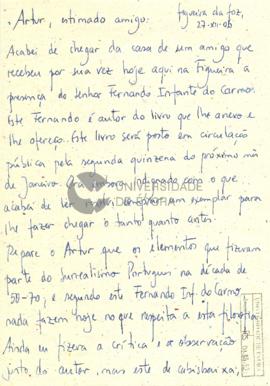 Artur, estimado amigo:
Figueira da Foz,
27-XII-06
Acabei de chegar da casa de um amigo que
recebeu por sua vez hoje aqui na Figueira a
presença do senhor Fernando Infante do Carmo.
Este Fernando é autor do livro que lhe anexo e
lhe ofereço. Este livro será posto em circulação
pública pela segunda quinzena do próximo mês
de Janeiro. Ora indignado com o que
acabei de ler exemplar para
lhe fazer chegar o tanto quanto antes.
Repare o Artur que os elementos que fizeram
parte do surrealismo Português na década de
50-70, e segundo este Fernando Inf. do Carmo,
nada fazem hoje no que respeita a esta filosofia
Ainda eu fizera a crítica e a observação
junto do autor, mas este de cabisbaixa,
UNIVERSIDADE
DE ÉVORA